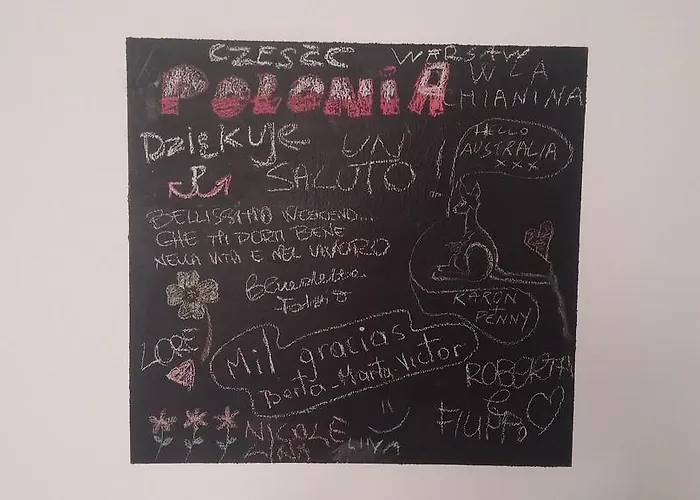 CZESZC WARSAW
POLONIA
W LA
CHIANINA
DZIĘKUJE
UN
SALUTO !!
HELLO
AUSTRALIA
xxx
BELLISSIMO WEEKEND...
CHE TI PORTI BENE
NELLA VITA E NEL LAVORO
KARON
+
PENNY
LORE
Mil gracias
Berta-Marta-Victor
ROBERTA
&
FILIPPO
NICOLE
LUNA